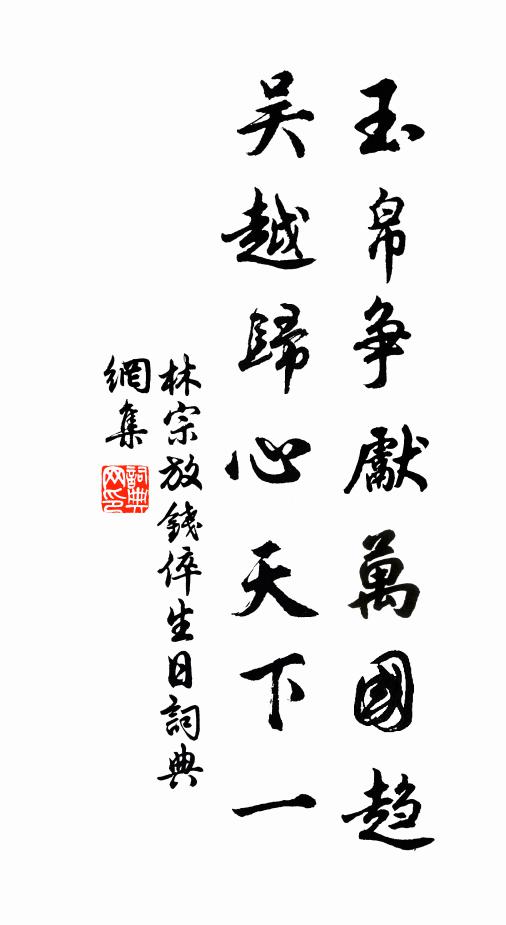 玉帛争獻萬國趋
吴越歸心天下一
林宗放錢倅生日詞典
網集
詞典網印